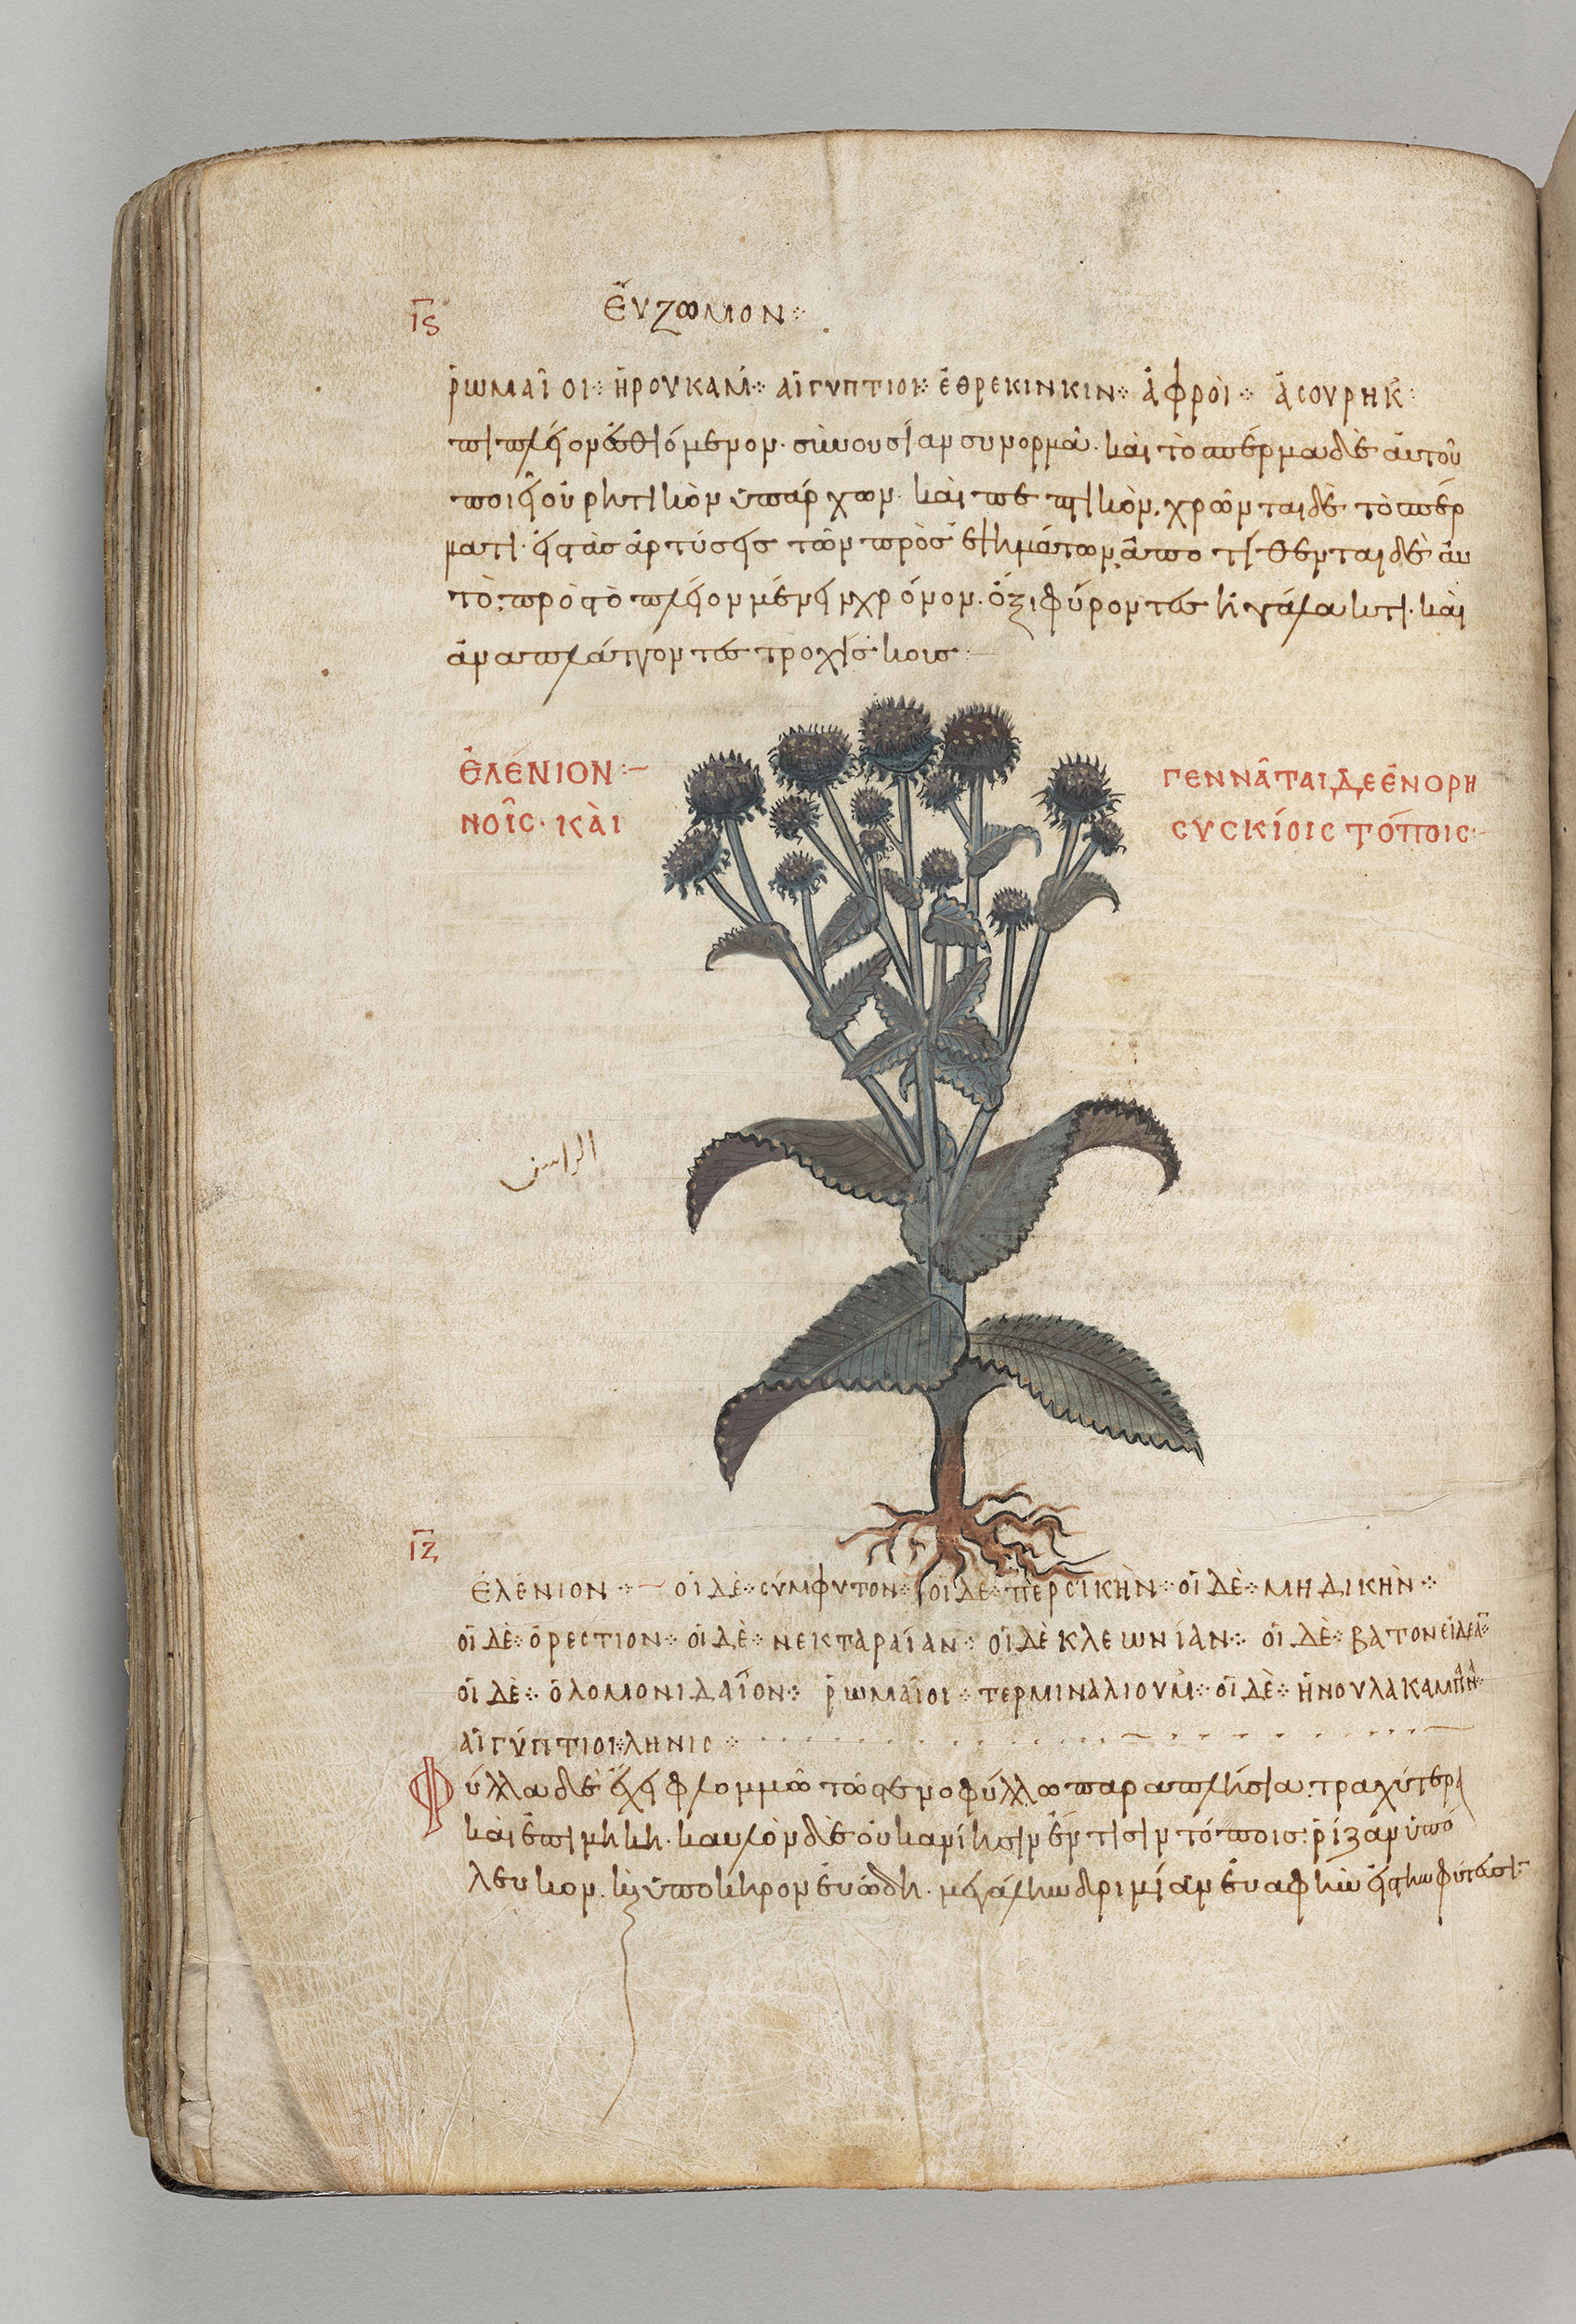 ις ἐυζωμον
ῥωμαῖοι ἠρουκαμ αἰγυπτιοι ἐθρεκινκιν ἀφροὶ ἀσουρηκ
πιπλεῖον ἐσθιόμενον συνουσίαν συνορμᾶ. καὶ τὸ σπέρμα δὲ ἀυτοῦ
ποιεῖ οὐρητικὸν ὑπάρχων. καὶ πεπτικὸν, χρῶνται δὲ τὸ σπέρ
ματι εἰς τὰς ἀρτύσεις τῶν προσεψημάτων, ἀποτίθενται δὲ ἀυ
τὸ πρὸς τὸ πλεῖον μένειν χρόνον. ὄξι φύροντες ἢ γάλακτι. καὶ
ἀναπλάττοντες τροχίσκοις
ἐλένιον γεννᾶται δε ἐν ορη
νοῖς καὶ συσκίοις τόποις
الراسن
ιζ
ἐλένιον οἱ δὲ σύμφυτον οἱ δὲ περσικὴν οἱ δὲ μηδικὴν
οἱ δὲ ὀρεστιον οἱ δὲ νεκταραίαν οἱ δὲ κλεωνίαν οἱ δὲ βατονεῖδεαν
οἱ δὲ ὀλομονιδαῖον ῥωμαῖοι τερμιναλιουμ οἱ δὲ ἠνουλακαμπαν
αἰγύπτιοι ληνις
Φύλλα δὲ ἔχει φλομμῶ τῶ στενοφύλλω παραπλήσια τραχύτερα
καὶ ἐπιμήκη. καυλὸν δὲ οὐκ ἀνίησιν ἔν τισιν τόποις ῥίζαν ὑπό
λευκον. κ ὑπόκιρον ἐυώδη. μεγάλην δριμίαν ἐυαφῆ εἰς τὴν φύτευσιν